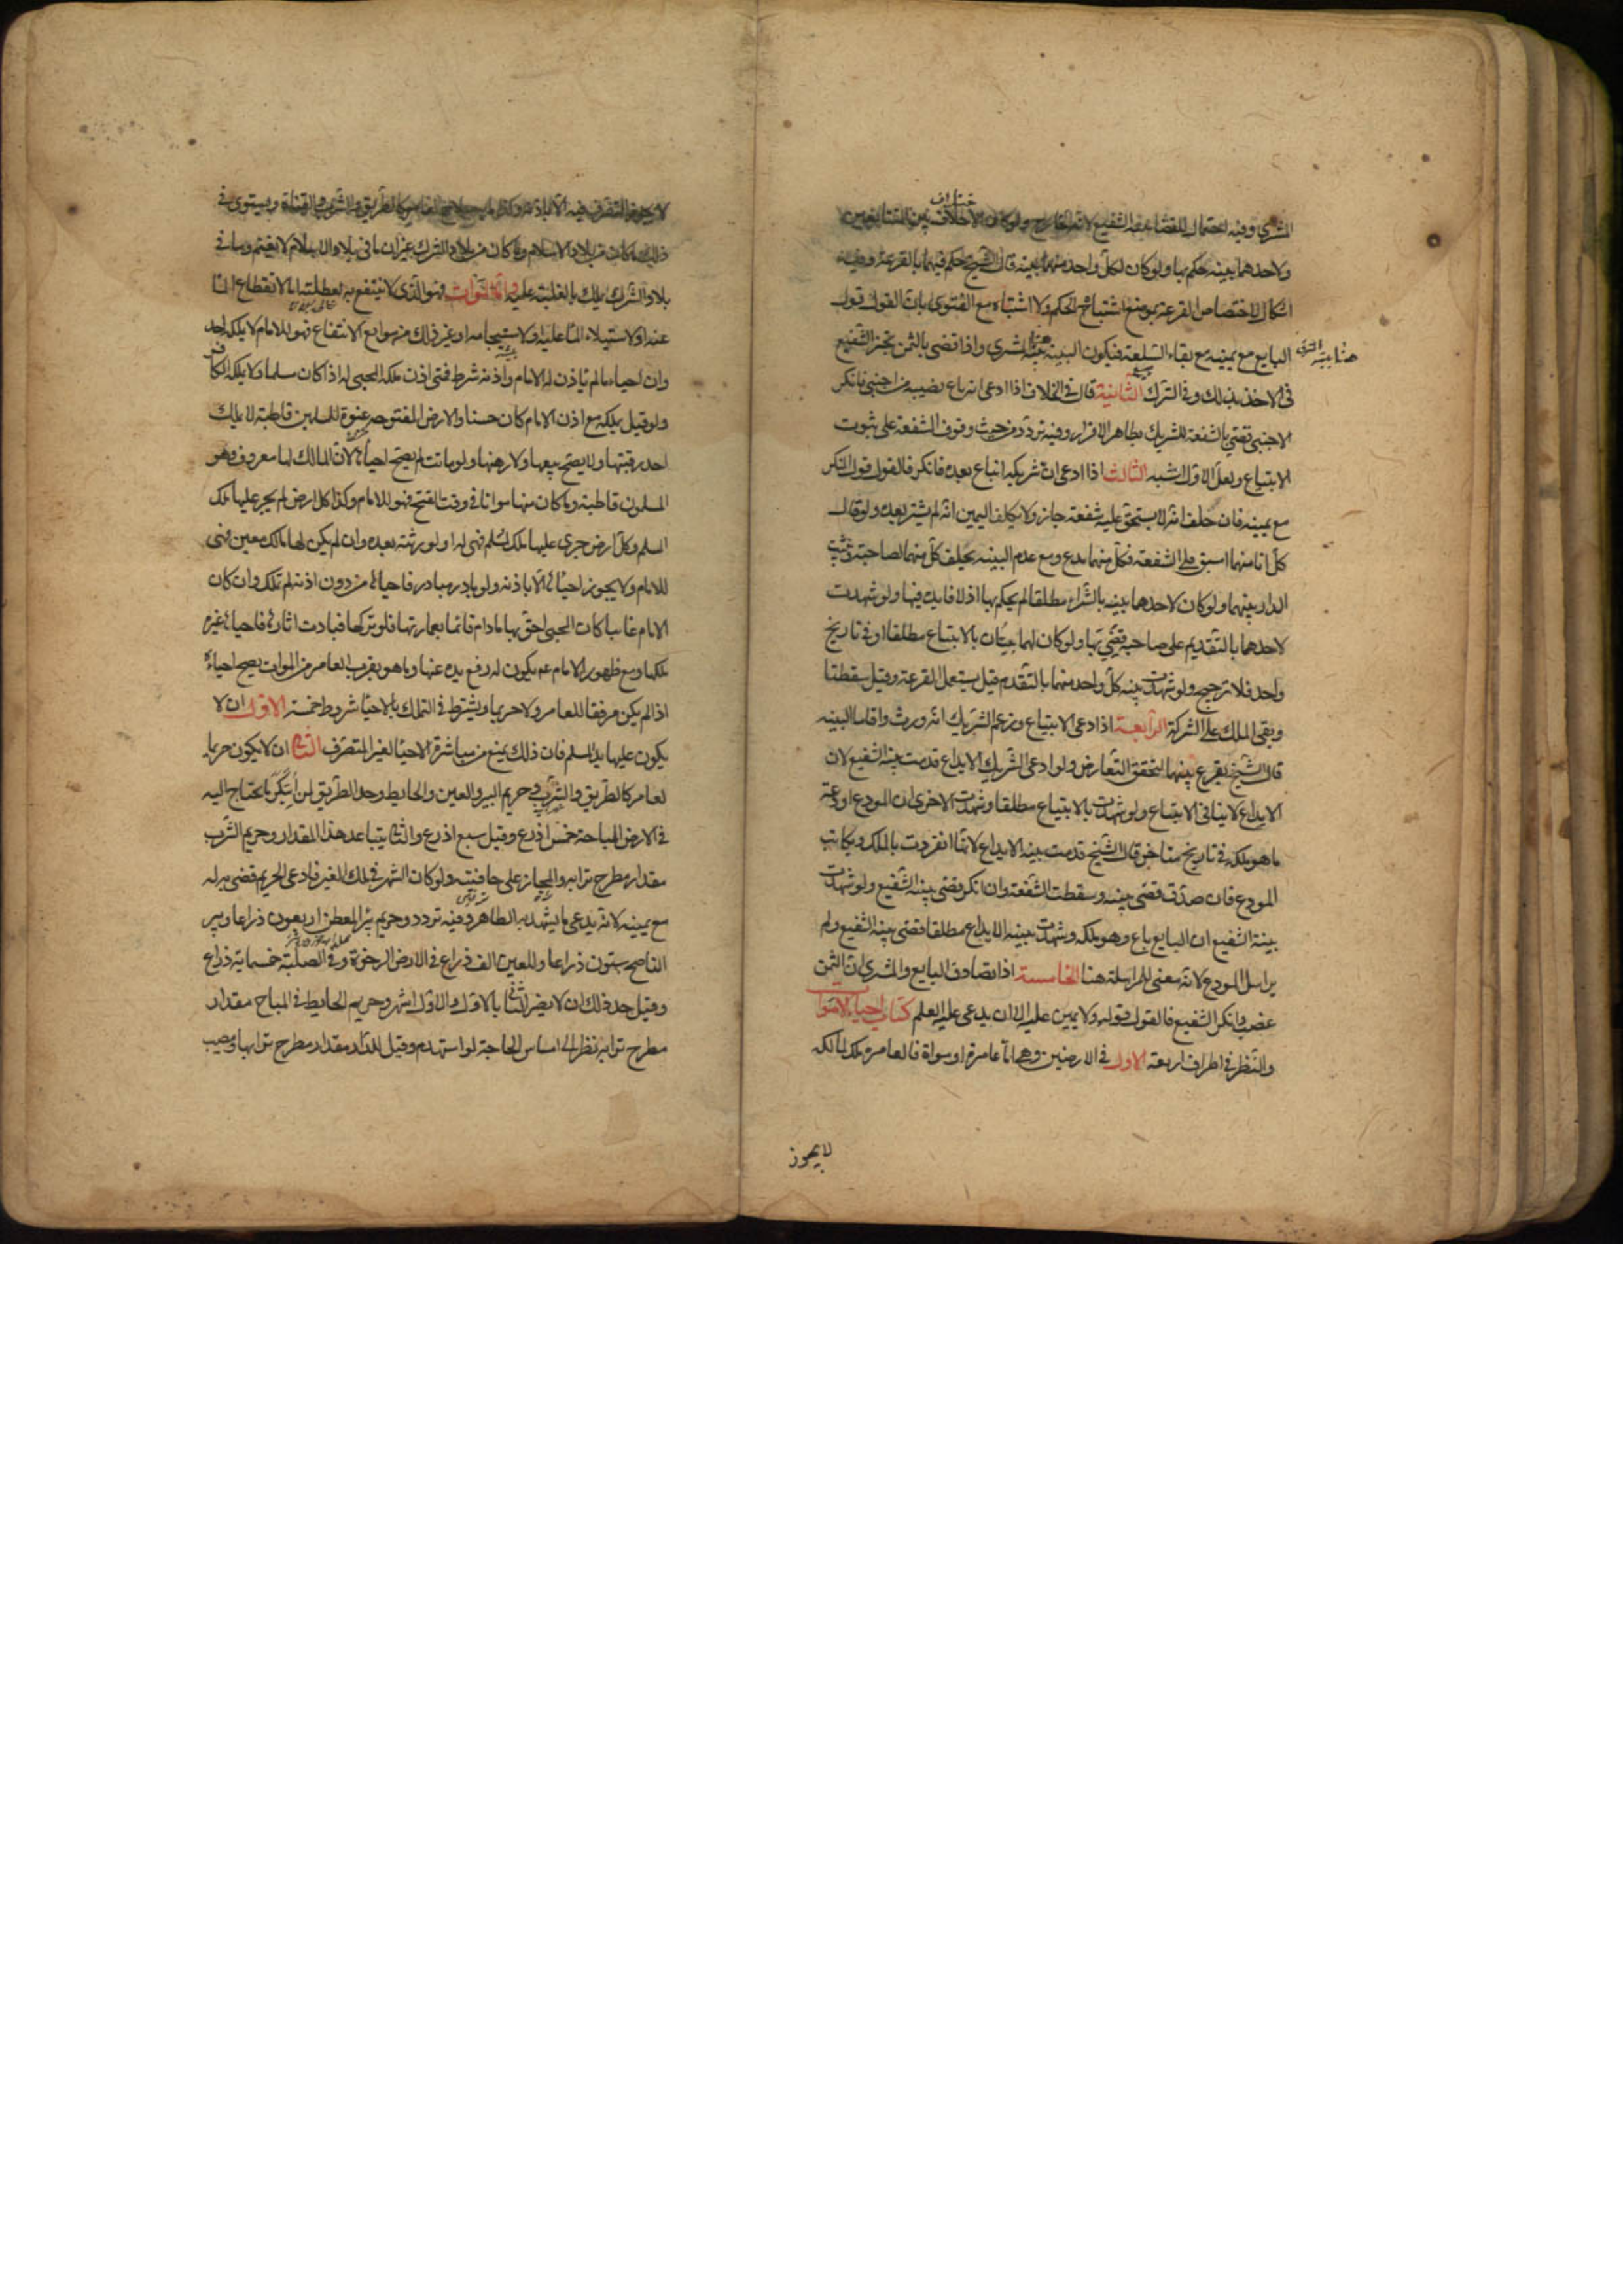 المشتري وفيه احتمال للقضاء ببينة الشفيع لانه الخارج ولو كان الاختلاف بين المتبايعين
ولاحدهما بينه حكم بها ولو كان لكل واحد منهما بينه قال الشيخ حكم فيهما بالقرعة وفيه
اشكال لاختصاص القرعة بموضع اشتباه الحكم ولا اشتباه مع الفتوى بان القول قول
البايع مع يمينه مع بقاء السلعة فيكون البينه بينة المشتري واذا قضى بالثمن تخير الشفيع
في الاخذ بذلك وفي الترك الثانية قال في الخلاف اذا ادعى انه باع نصيبه من اجنبي فانكر
الاجنبي قضي بالشفعة للشريك بظاهر الاقرار وفيه تردد من حيث وقوف الشفعة على ثبوت
الابتياع ولعل الاول اشبه الثالث اذا ادعى ان شريكه ابتاع بعده فانكر فالقول قول المنكر
مع يمينه فان حلف انه لا يستحق عليه شفعة جاز ولا يكلف اليمين انه لم يشتر بعده ولو قال
كل انا منهما اسبق فله الشفعة فكل منهما مدع ومع عدم البينه يحلف كل منهما لصاحبه ويثبت
الدار بينهما ولو كان لاحدهما بينه بالشراء مطلقا لم يحكم بها اذ لا فايدة فيها ولو شهدت
لاحدهما بالتقديم على صاحبه قضي بها ولو كان لهما بينتان بالابتياع مطلقا او في تاريخ
واحد فلا ترجيح ولو شهدت بينه كل واحد منهما بالتقدم قيل يستعمل القرعة وقيل سقطتا
وبقى الملك على الشركة الرابعة اذا ادعى الابتياع وزعم الشريك انه ورث واقاما البينه
قال الشيخ يقرع بينهما لتحقق التعارض ولو ادعى الشريك الايداع قدمت بينة الشفيع لان
الايداع لا ينافي الابتياع ولو شهدت بالابتياع مطلقا وشهدت الاخرى ان المودع اودعه
ما هو ملكه في تاريخ متاخر قال الشيخ قدمت بينة الايداع لانها انفردت بالملك ويكاتب
المودع فان صدق قضى ببينه وسقطت الشفعة وان انكر قضى ببينة الشفيع ولو شهدت
بينة الشفيع ان البايع باع وهو ملكه وشهدت بينة الايداع مطلقا قضى ببينة الشفيع ولم
يراسل المودع لانه لا معنى للمراسلة هنا الخامسة اذا تصادق البايع والمشتري ان الثمن
غصب وانكر الشفيع فالقول قوله ولا يمين عليه الا ان يدعى عليه العلم كتاب احياء الاموات
والنظر في اطراف اربعة الاول في الارضين وهي اما عامرة او موات فالعامر ملك لمالكه
لا يجوز
لا يجوز التصرف فيه الا باذنه وكذا ما به صلاح العامر كالطريق والشرب والقناة ويستوى في
ذلك ما كان من بلاد الاسلام وما كان من بلاد الشرك غير ان ما في بلاد الاسلام لا يغنم وما في
بلاد الشرك يملك بالغلبة عليه واما الموات فهو الذي لا ينتفع به لعطلته اما لانقطاع الماء
عنه او لاستيلاء الماء عليه او لاستيجامه او غير ذلك من موانع الانتفاع فهو للامام لا يملكه احد
وان احياه ما لم ياذن له الامام واذنه شرط فمتى اذن ملكه المحيي له اذا كان مسلما ولا يملكه الكافر
ولو قيل يملكه مع اذن الامام كان حسنا والارض المفتوحه عنوة للمسلمين قاطبة لا يملك
احد رقبتها ولا يصح بيعها ولا رهنها ولو ماتت لم يصح احياؤها لان المالك لها معروف وهو
المسلمون قاطبة وما كان منها مواتا في وقت الفتح فهو للامام وكذا كل ارض لم يجر عليها ملك
المسلم وكل ارض جرى عليها ملك لمسلم فهي له او لورثته بعده وان لم يكن لها مالك معين فهى
للامام ولا يجوز احياؤها الا باذنه ولو بادر مبادر فاحياها من دون اذنه لم تملك وان كان
الامام غايبا كان المحيي احق بها ما دام قائما بعمارتها فلو تركها فبادت اثارها فاحياها غيره
ملكها ومع ظهور الامام عم يكون له رفع يده عنها وما هو بقرب العامر من الموات يصح احياؤه
اذا لم يكن مرفقا للعامر ولا حريما ويشترط في التملك بالاحياء شروط خمسة الاول ان لا
يكون عليها يد لمسلم فان ذلك يمنع من مباشرة الاحياء لغير المتصرف الثاني ان لا يكون حريما
لعامر كالطريق والشرب وحريم البير والعين والحايط وحد الطريق لمن ابتكر ما يحتاج اليه
في الارض المباحة خمس اذرع وقيل سبع اذرع والثاني يتباعد هذا المقدار وحريم الشرب
مقدار مطرح ترابه والمجاز على حافتيه ولو كان النهر في ملك الغير فادعى الحريم قضى به له
مع يمينه لانه يدعى ما يشهد به الظاهر وفيه تردد وحريم بئر المعطن اربعون ذراعا وبير
الناضح ستون ذراعا وللعين الف ذراع في الارض الرخوة وفي الصلبة خمسماية ذراع
وقيل حد ذلك ان لا يضر الثاني بالاول والاول اشهر وحريم الحايط في المباح مقدار
مطرح ترابه نظرا الى امساس الحاجة لو استهدم وقيل للدار مقدار مطرح ترابها ومصب